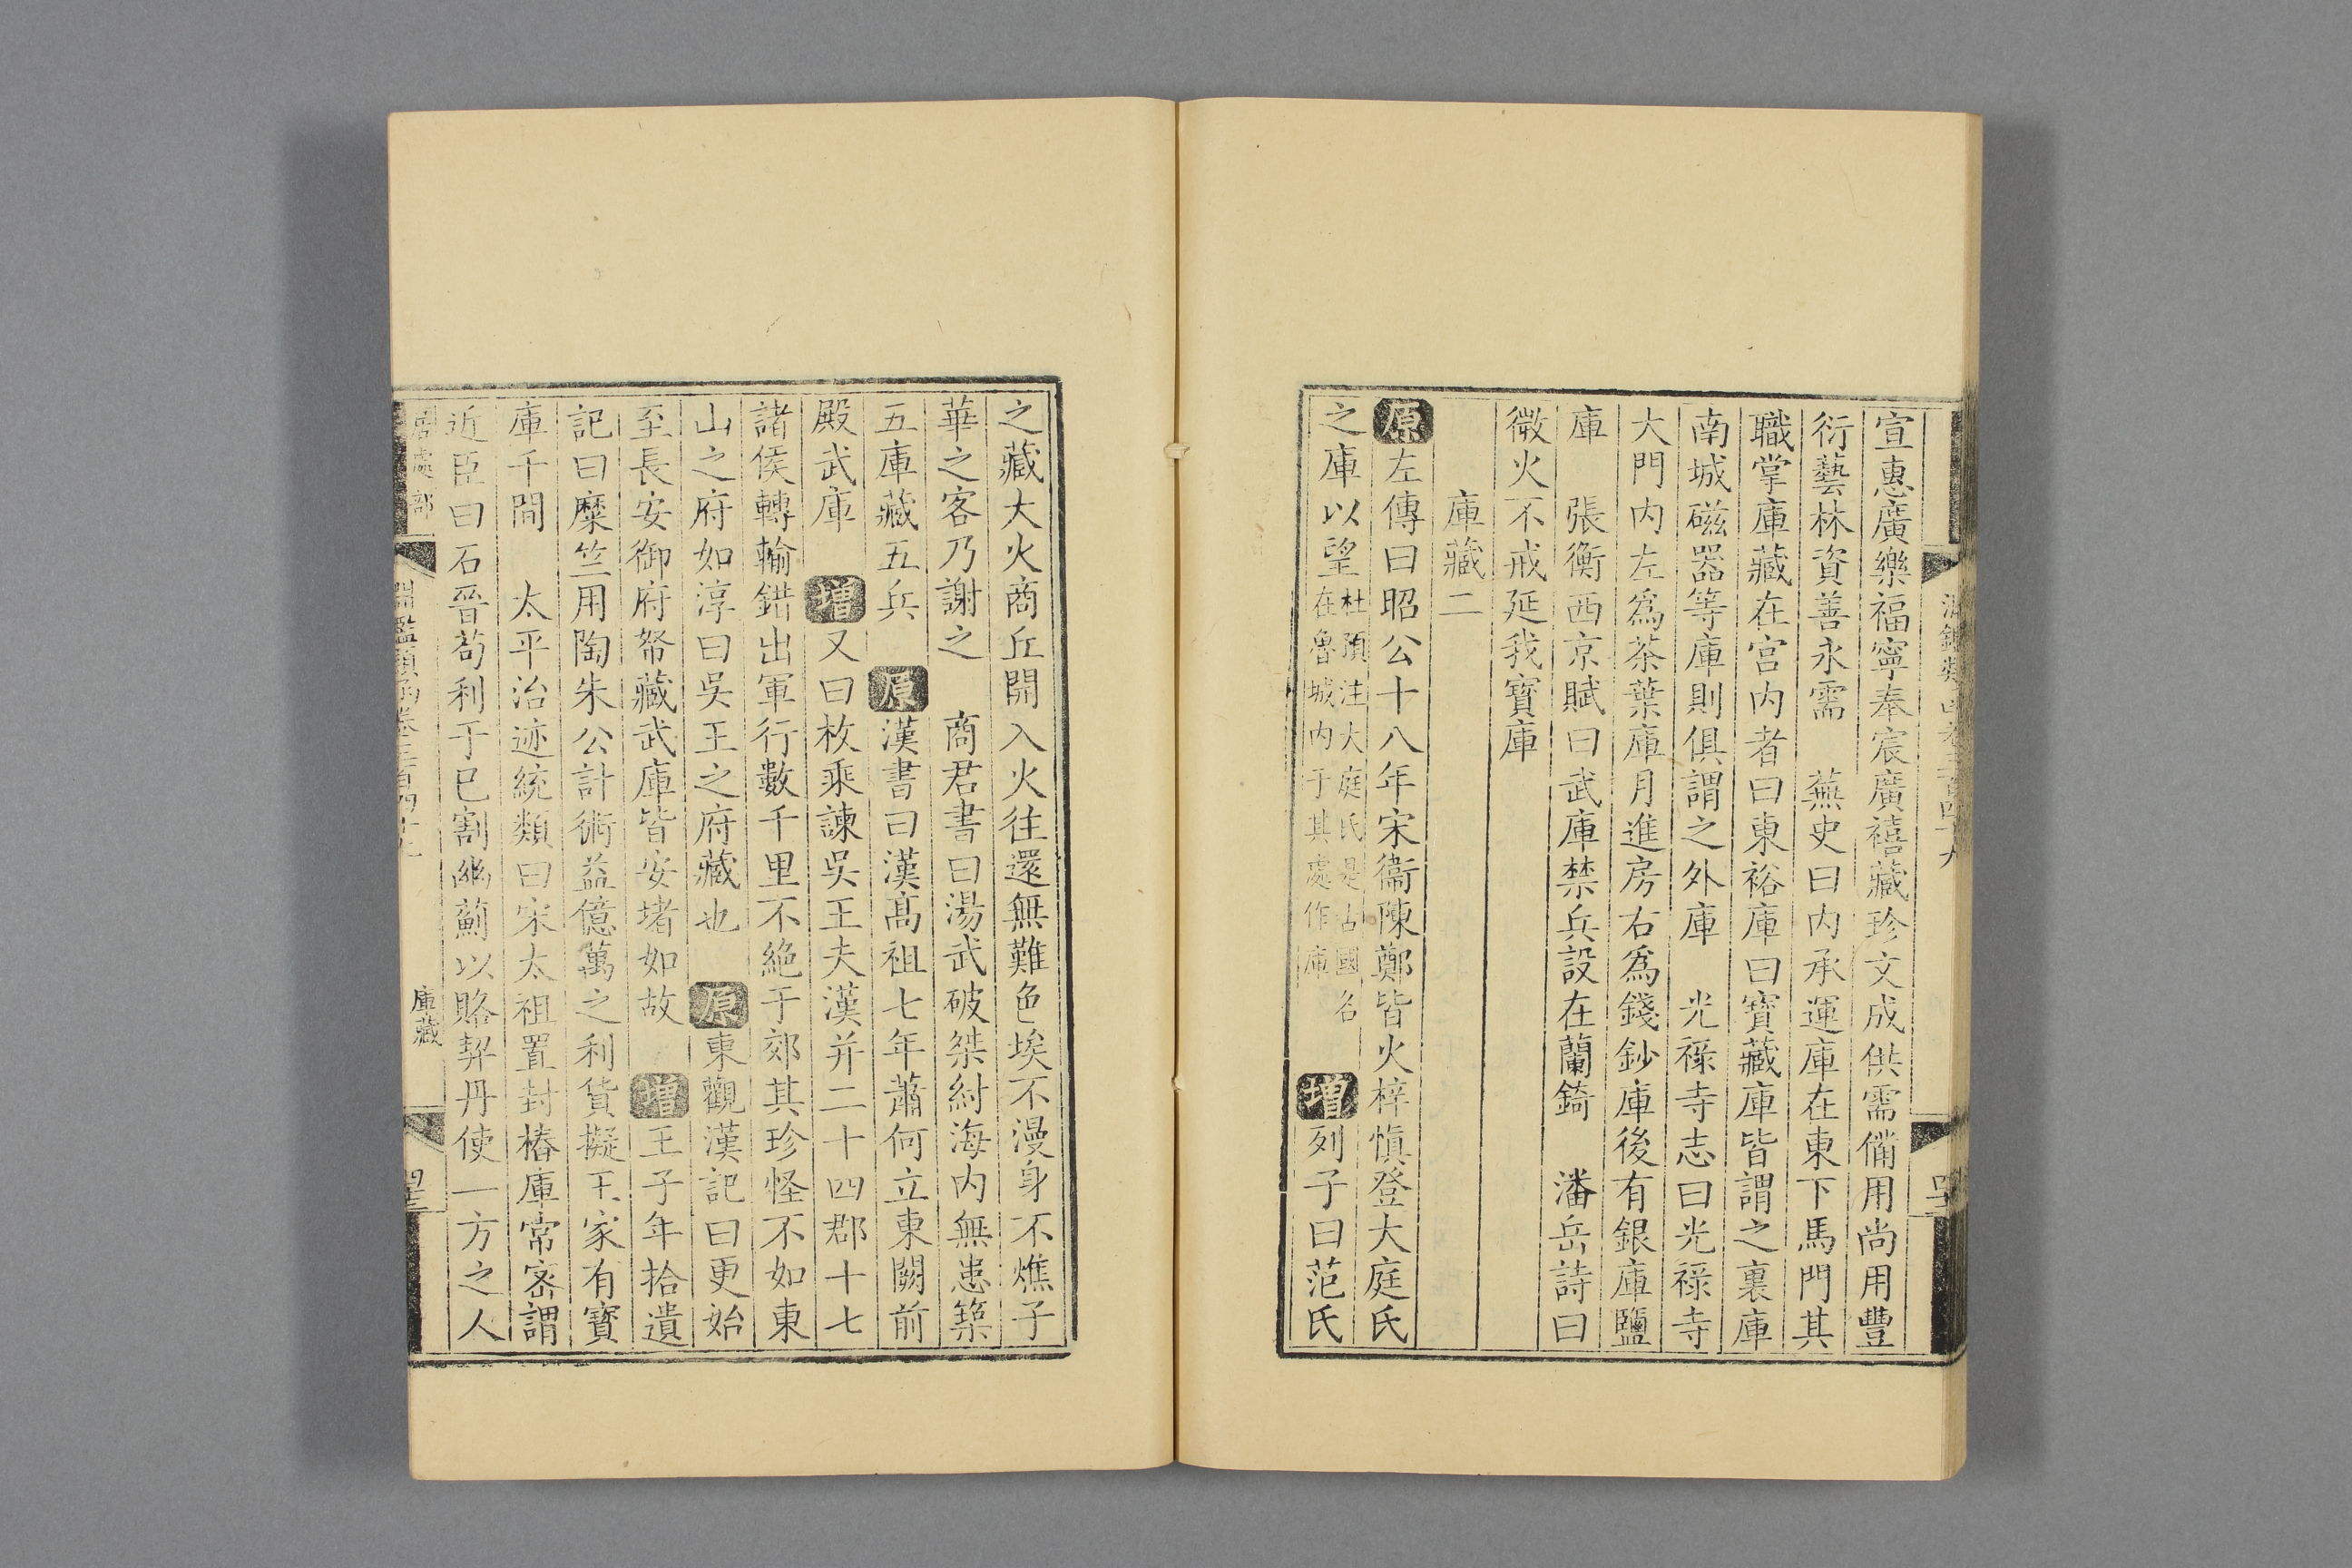 宣惠廣樂福寧奉宸廣禧藏珍文成供需備用尚用豐
衍藝林資善永需　蕪史曰内承運庫在東下馬門其
職掌庫藏在宫内者曰東裕庫曰寶藏庫皆謂之裏庫
南城磁器等庫則俱謂之外庫　光祿寺志曰光祿寺
大門内左爲茶葉庫月進房右爲錢鈔庫後有銀庫鹽
庫　張衡西京賦曰武庫禁兵設在蘭錡　潘岳詩曰
微火不戒延我寶庫
庫藏二
原左傳曰昭公十八年宋衞陳鄭皆火梓慎登大庭氏
之庫以望杜預注大庭氏是古國名在魯城内于其處作庫　增列子曰范氏
之藏大火商丘開入火往還無難色埃不漫身不燋子
華之客乃謝之　商君書曰湯武破桀紂海内無患築
五庫藏五兵　原漢書曰漢髙祖七年蕭何立東闕前
殿武庫　增又曰枚乘諫吳王夫漢并二十四郡十七
諸侯轉輸錯出軍行數千里不絶于郊其珍怪不如東
山之府如淳曰吳王之府藏也　原東觀漢記曰更始
至長安御府帑藏武庫皆安堵如故　增王子年拾遺
記曰糜竺用陶朱公計術益億萬之利貨擬王家有寳
庫千間　太平治迹統類曰宋太祖置封樁庫常宻謂
近臣曰石晉苟利于已割幽薊以賂契丹使一方之人
居處部
淵鑑類函卷三百四十九
庫藏